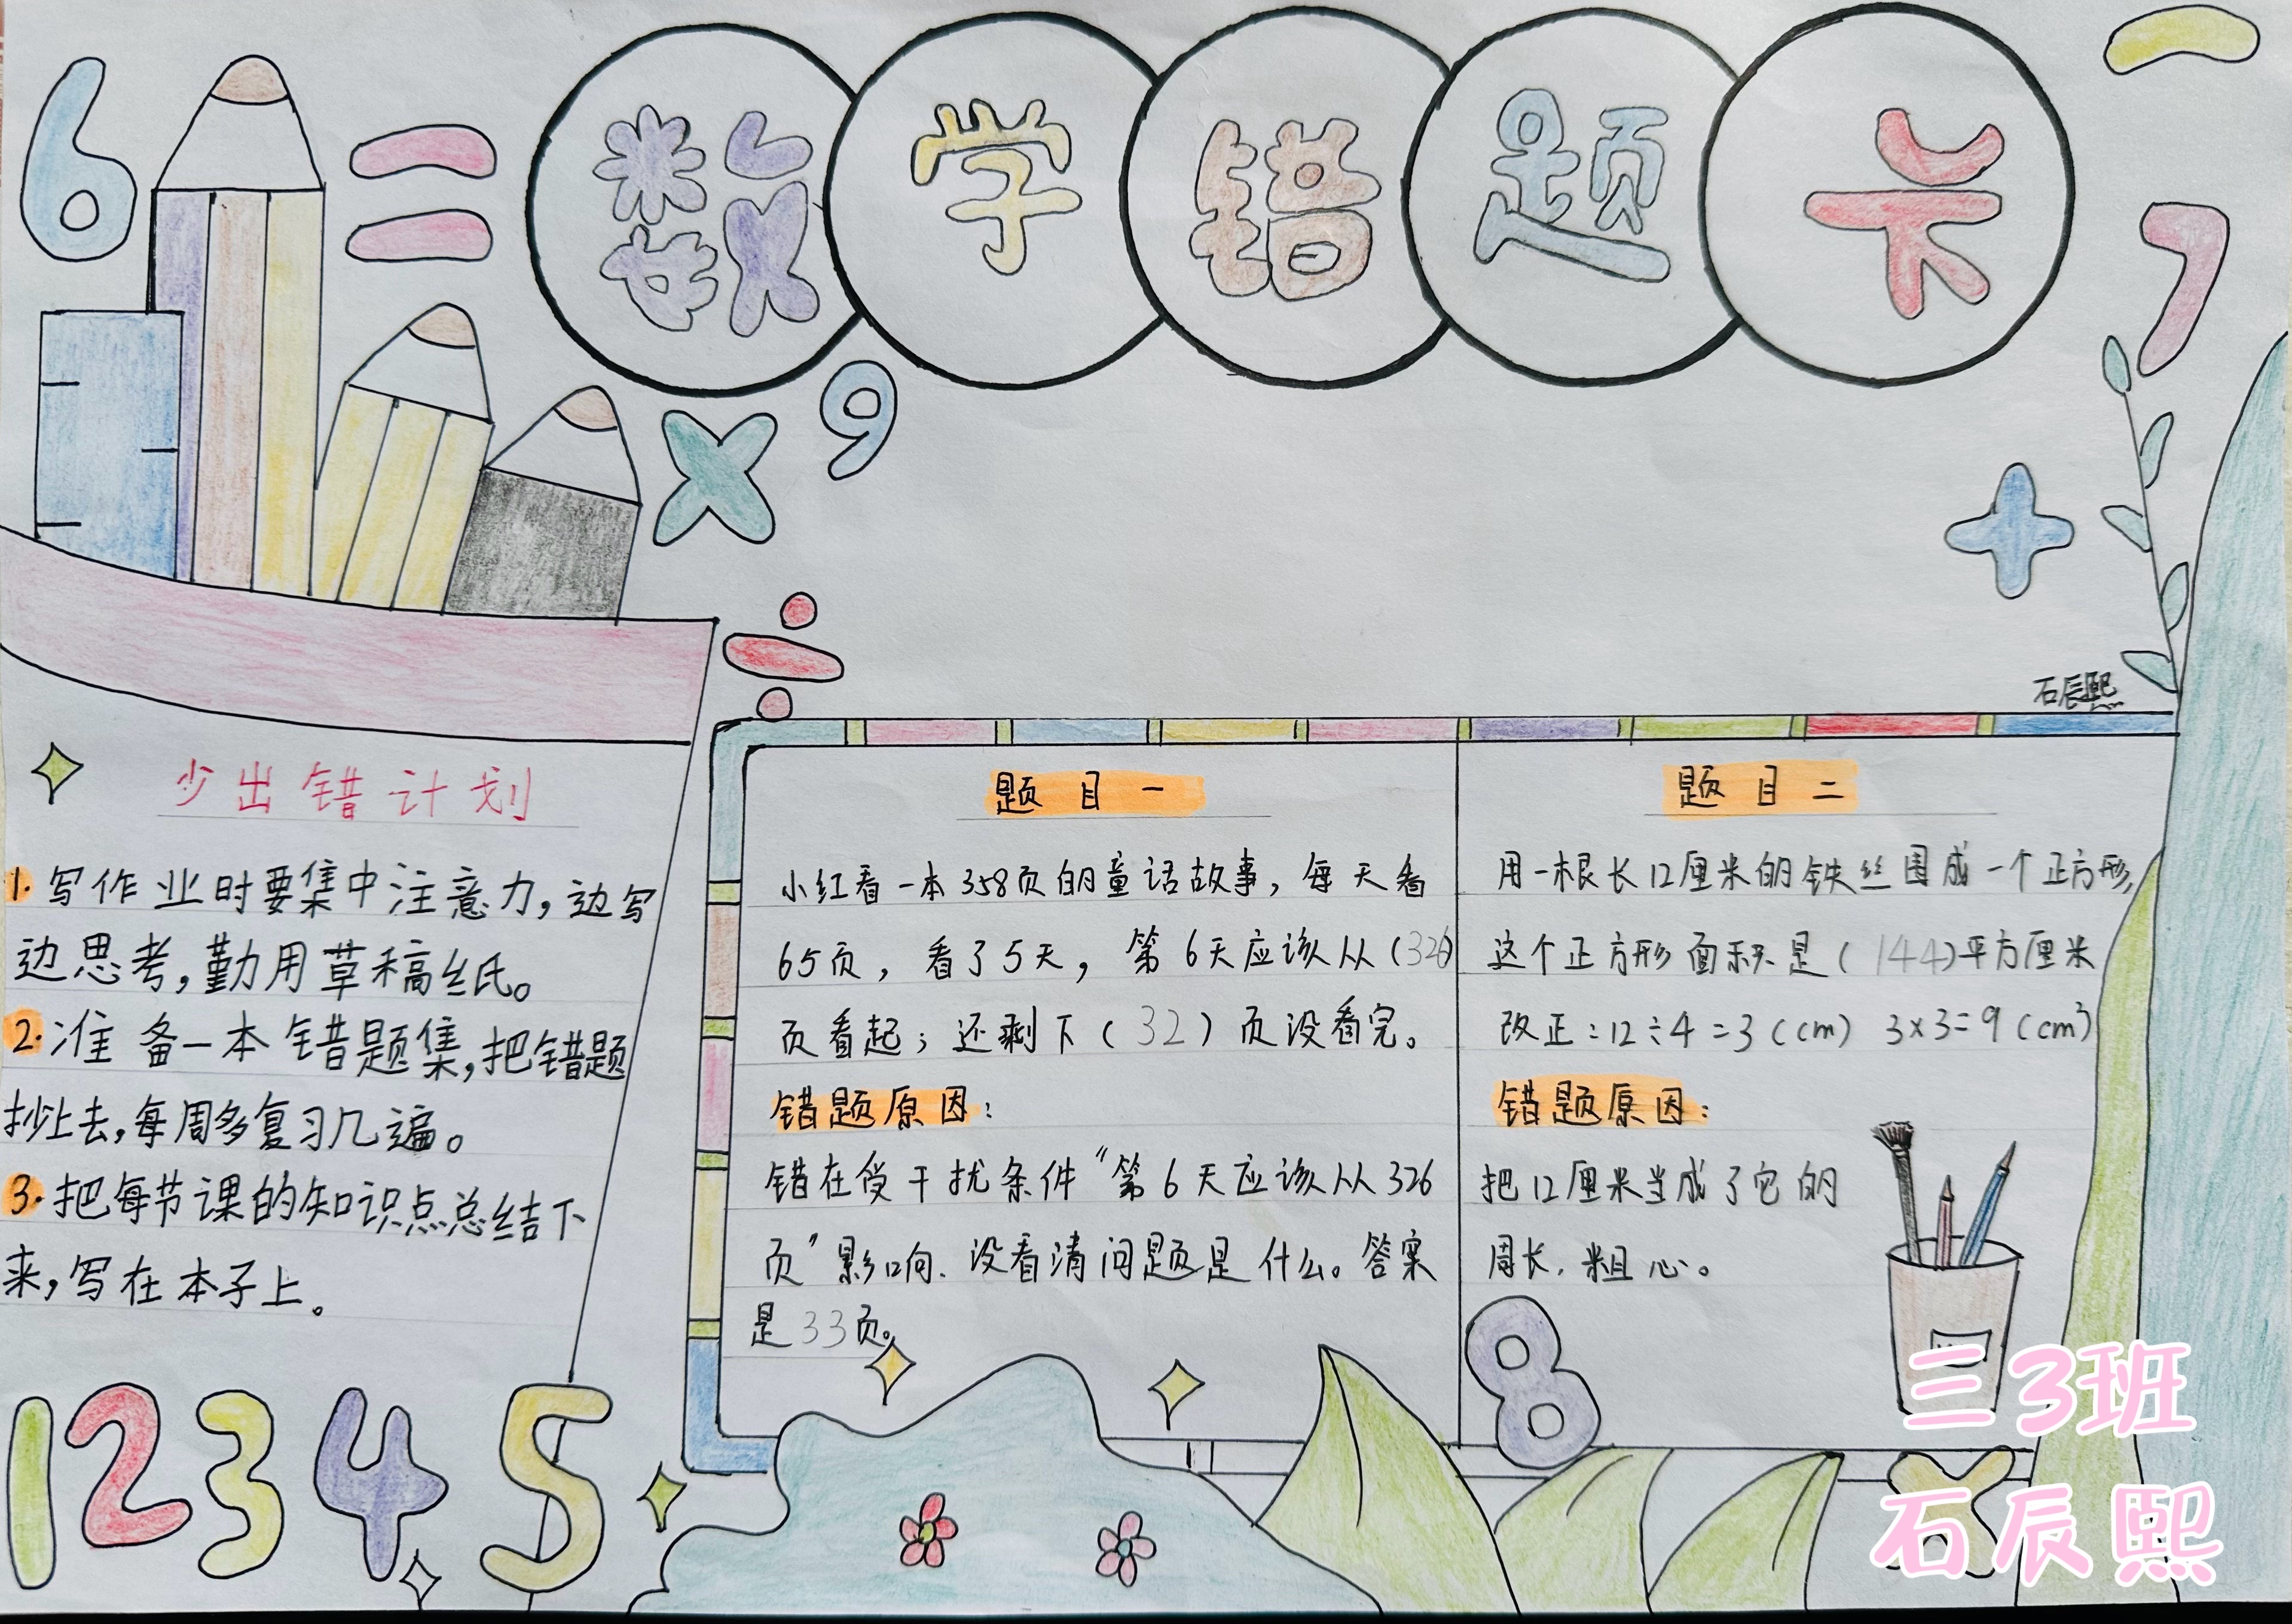 数学错题卡
6
=
7
×
9
+
÷
石辰熙
少出错计划
1.写作业时要集中注意力,边写
边思考,勤用草稿纸。
2.准备一本错题集,把错题
抄上去,每周多复习几遍。
3.把每节课的知识点总结下
来,写在本子上。
题目一
小红看一本358页的童话故事,每天看
65页,看了5天,第6天应该从(326)
页看起;还剩下(32)页没看完。
错题原因:
错在受干扰条件“第6天应该从326
页”影响.没看清问题是什么。答案
是33页。
题目二
用一根长12厘米的铁丝围成一个正方形,
这个正方形面积是(144)平方厘米
改正:12÷4=3(cm) 3×3=9(cm²)
错题原因:
把12厘米当成了它的
周长.粗心。
8
12345
三3班
石辰熙